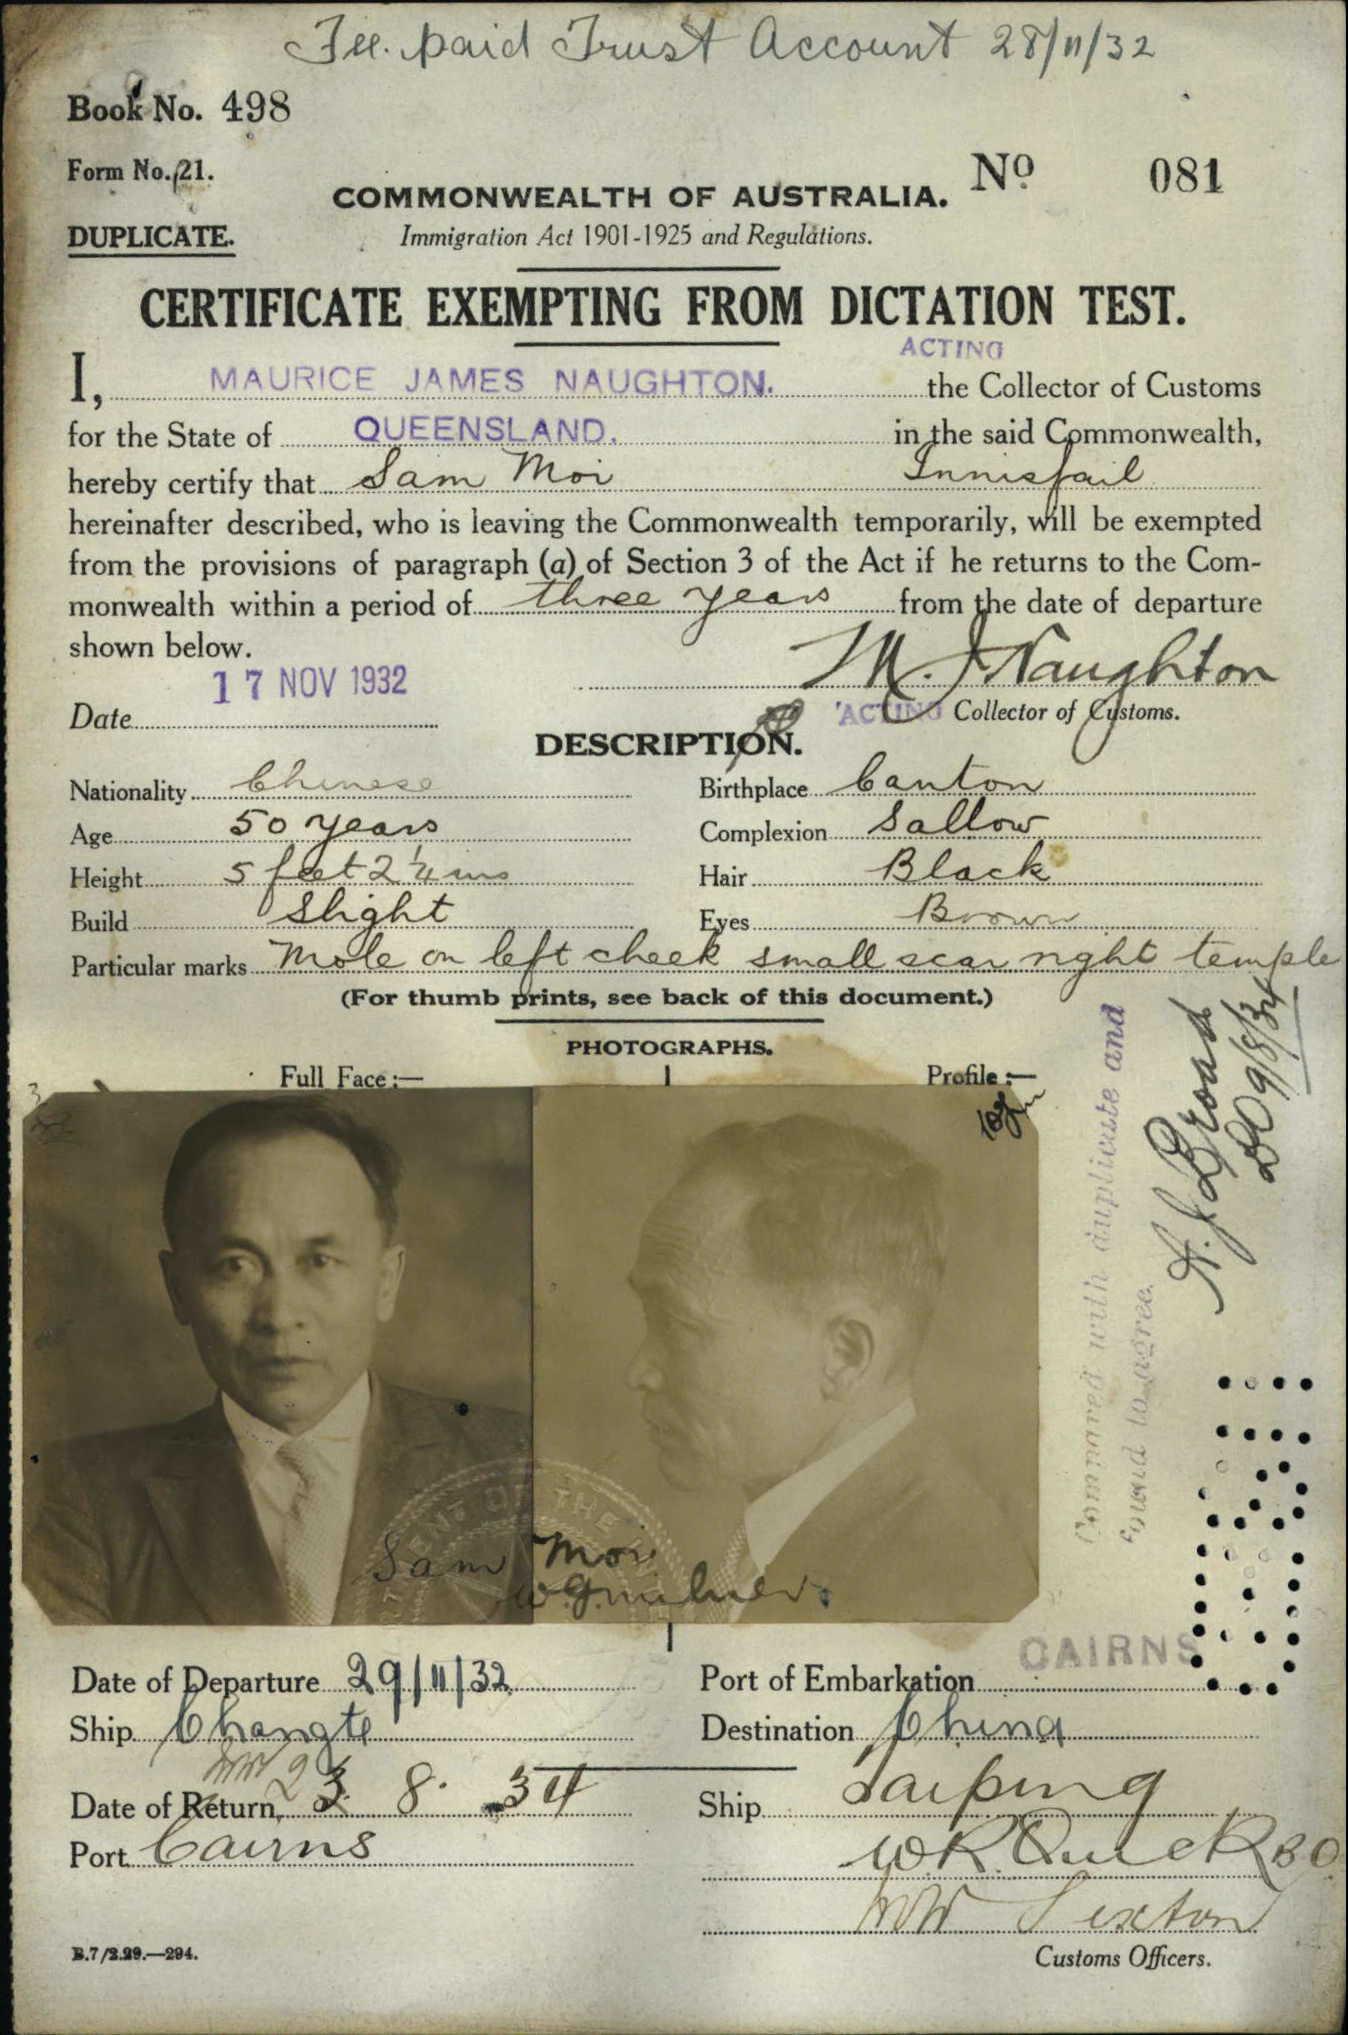 Fee paid Trust Account 28/11/32
Book No. 498
Form No. 21.
No 081
COMMONWEALTH OF AUSTRALIA.
DUPLICATE.
Immigration Act 1901-1925 and Regulations.
CERTIFICATE EXEMPTING FROM DICTATION TEST.
ACTING
I, MAURICE JAMES NAUGHTON. the Collector of Customs
for the State of QUEENSLAND. in the said Commonwealth,
hereby certify that Sam Moi Innisfail
hereinafter described, who is leaving the Commonwealth temporarily, will be exempted
from the provisions of paragraph (a) of Section 3 of the Act if he returns to the Com-
monwealth within a period of three years from the date of departure
shown below.
M. J. Naughton
17 NOV 1932
Date
ACTING Collector of Customs.
DESCRIPTION.
Nationality Chinese Birthplace Canton
Age 50 years Complexion Sallow
Height 5 feet 2 1/4 ins Hair Black
Build Slight Eyes Brown
Particular marks Mole on left cheek small scar right temple
(For thumb prints, see back of this document.)
PHOTOGRAPHS.
Full Face :— Profile :—
Compared with duplicate and
found to agree.
9/8/34
Sam Moi
Date of Departure 29/11/32 Port of Embarkation CAIRNS
Ship Changte Destination China
Date of Return 8. 34 Ship Taiping
Port Cairns
Customs Officers.
B.7/3.29.—294.